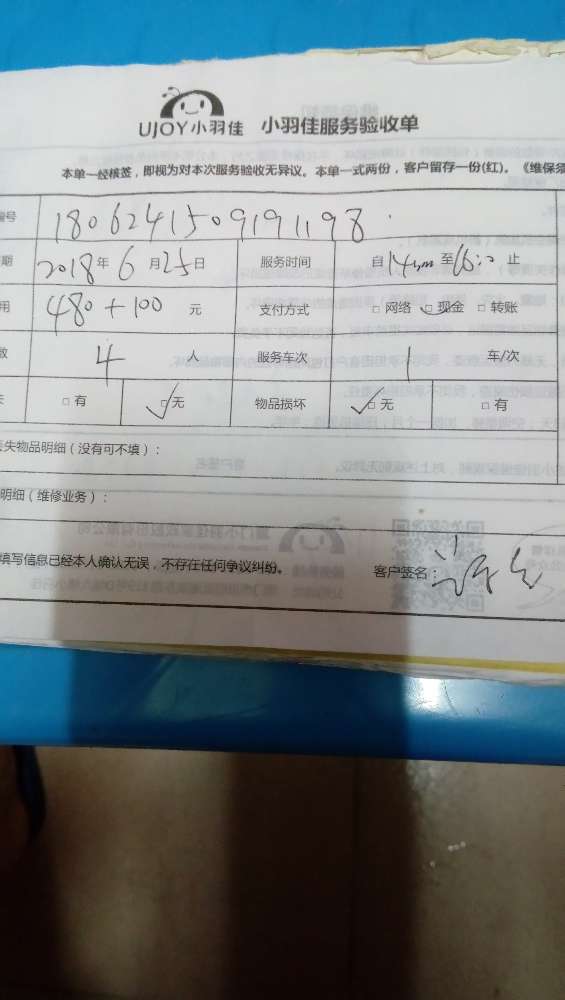 UJOY小羽佳 小羽佳服务验收单
本单一经核签，即视为对本次服务验收无异议。本单一式两份，客户留存一份(红)。《维保须
编号 1806241509191198
期 2018年6月25日 服务时间 自14:00至16:00止
用 480+100 元 支付方式 □网络 □现金 □转账
数 4 人 服务车次 1 车/次
失 □有 □无 物品损坏 □无 □有
丢失物品明细（没有可不填）：
明细（维修业务）：
填写信息已经本人确认无误，不存在任何争议纠纷。 客户签名：